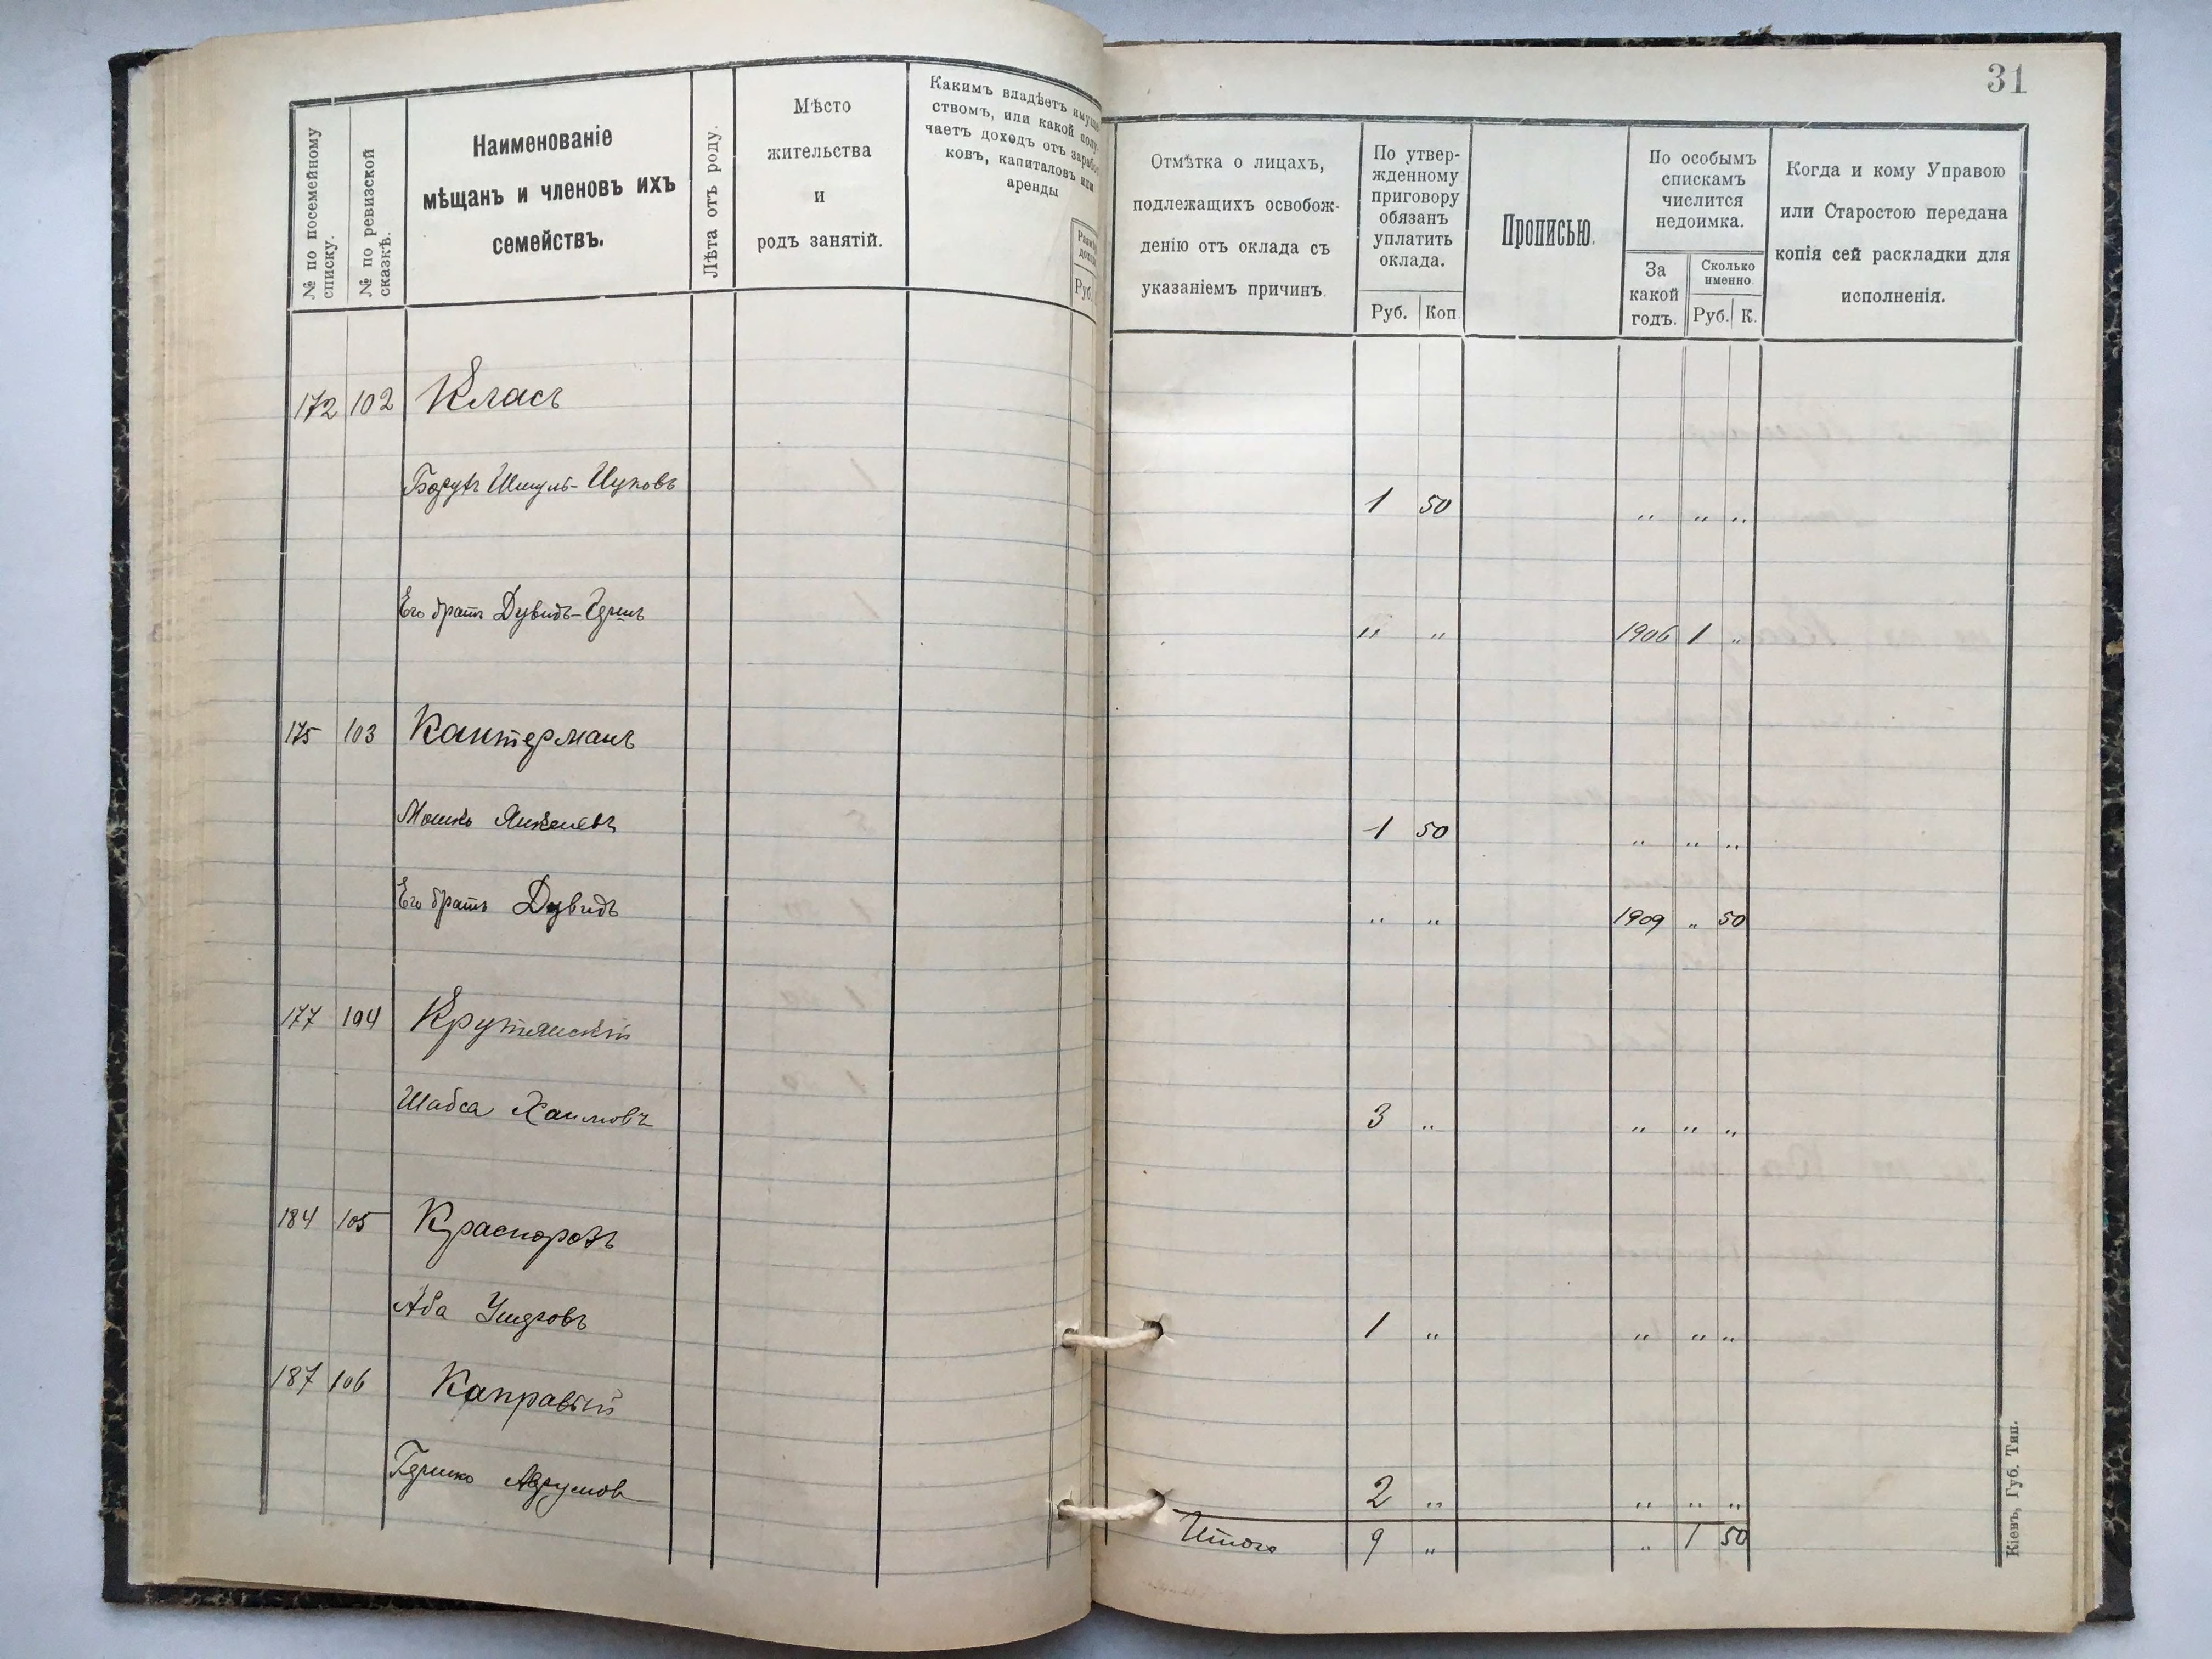 31
№ по посемейному списку.
№ по ревизской сказкѣ.
Наименованіе
мѣщанъ и членовъ ихъ
семействъ.
Лѣта отъ роду.
Мѣсто
жительства
и
родъ занятій.
Какимъ владѣетъ имуще
ствомъ, или какой полу
чаетъ доходъ отъ заработ
ковъ, капиталовъ или
аренды
Руб.
Отмѣтка о лицахъ,
подлежащихъ освобож-
денію отъ оклада съ
указаніемъ причинъ.
По утвер-
жденному
приговору
обязанъ
уплатить
оклада.
Руб. Коп.
Прописью.
По особымъ
спискамъ
числится
недоимка.
За
какой
годъ.
Сколько
именно.
Руб. К.
Когда и кому Управою
или Старостою передана
копія сей раскладки для
исполненія.
172 102 Класъ
Борухъ Шмуль- 1 50 „ „ „
Его братъ Дувидъ- „ „ 1906 1 „
175 103 Кантерманъ
Мошко Янкелевъ 1 50 „ „ „
Его братъ Дувидъ „ „ 1909 „ 50
177 104 Крутянскій
Шабса Хаимовъ 3 „ „ „ „
184 105
Аба 1 „ „ „ „
187 106 Каправый
Гершко 2 „ „ „ „
Итого 9 „ „ 1 50
Кіевъ, Губ. Тип.